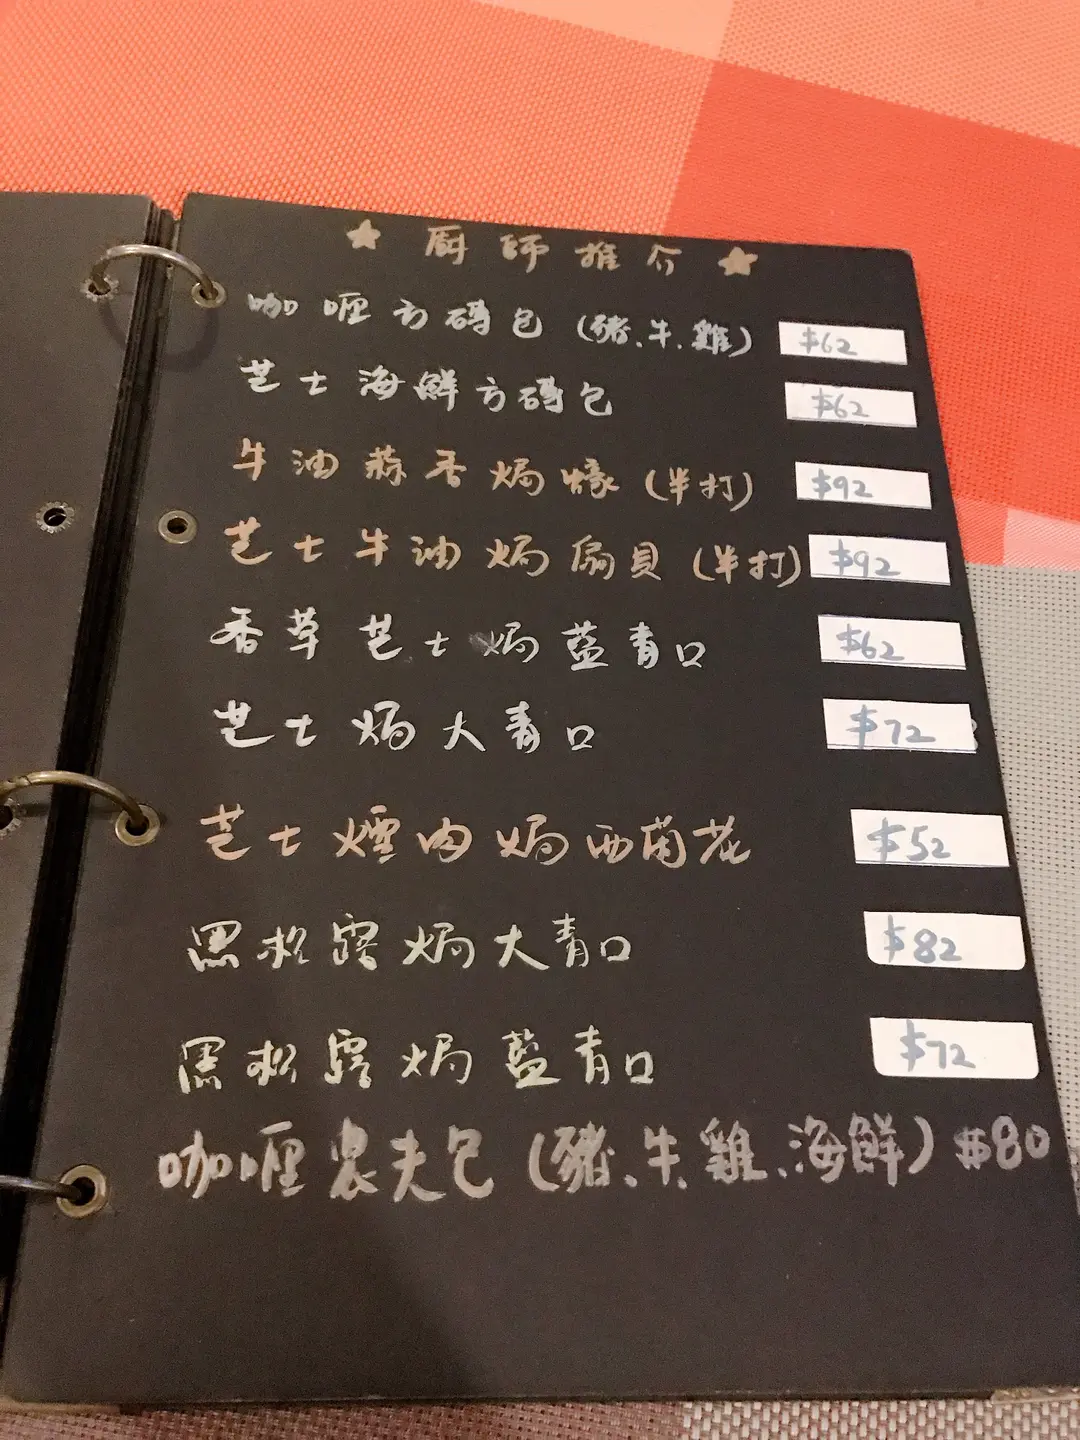 ★ 廚師推介 ★
咖喱方磚包 (豬、牛、雞) $62
芝士海鮮方磚包 $62
牛油蒜香焗蠔 (半打) $92
芝士牛油焗扇貝 (半打) $92
香草芝士焗藍青口 $62
芝士焗大青口 $72
芝士煙肉焗西蘭花 $52
黑松露焗大青口 $82
黑松露焗藍青口 $72
咖喱農夫包 (豬、牛、雞、海鮮) $80